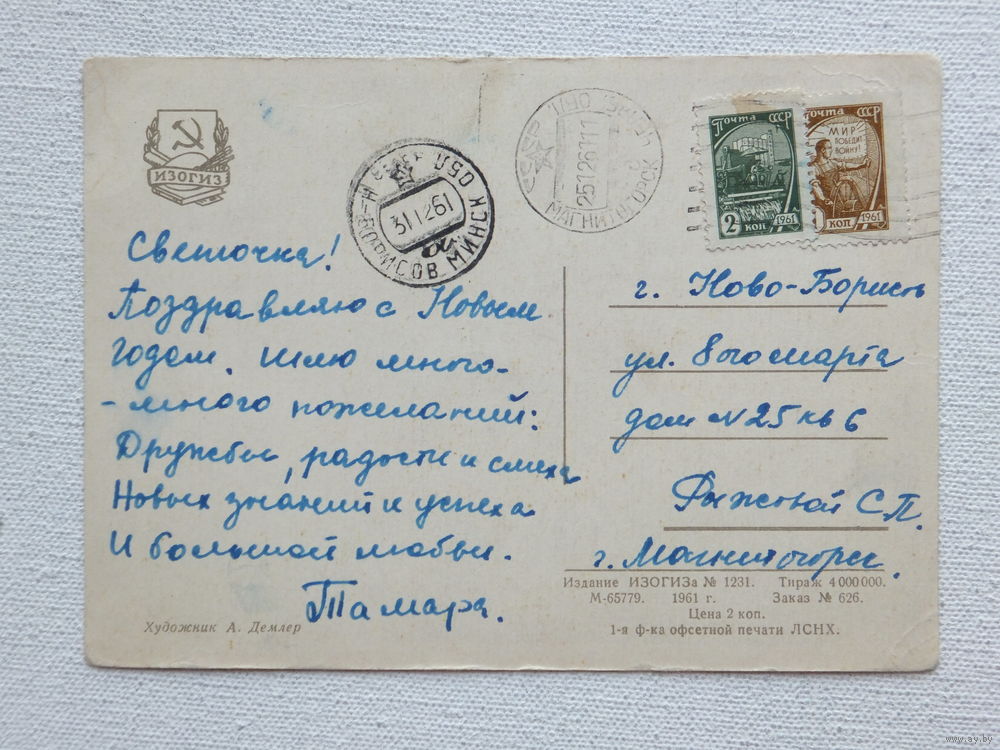 ИЗОГИЗ
Светочка!
Поздравляю с Новым
годом. Шлю много-
-много пожеланий:
Дружбы, радости и смеха
Новых знаний и успеха
И большой любви.
Тамара.
Художник А. Демлер
31 12 61
БОРИСОВ МИНСК
МАГНИТОГОРСК
СССР
Почта СССР
2 коп
1961
Почта СССР
МИР
ПОБЕДИТ
ВОЙНУ!
1 коп.
1961
г. Ново-Борисов
ул. 8ого марта
дом N 25 кв 6
Рыжовой С.П.
г. Магнитогорск.
Издание ИЗОГИЗа № 1231. Тираж 4 000 000.
М-65779. 1961 г. Заказ № 626.
Цена 2 коп.
1-я ф-ка офсетной печати ЛСНХ.
www.ay.by